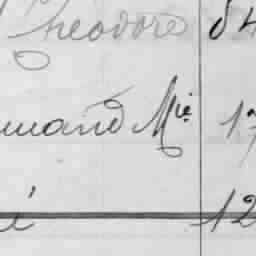 Theodore 84
mand Mie 17
é 12